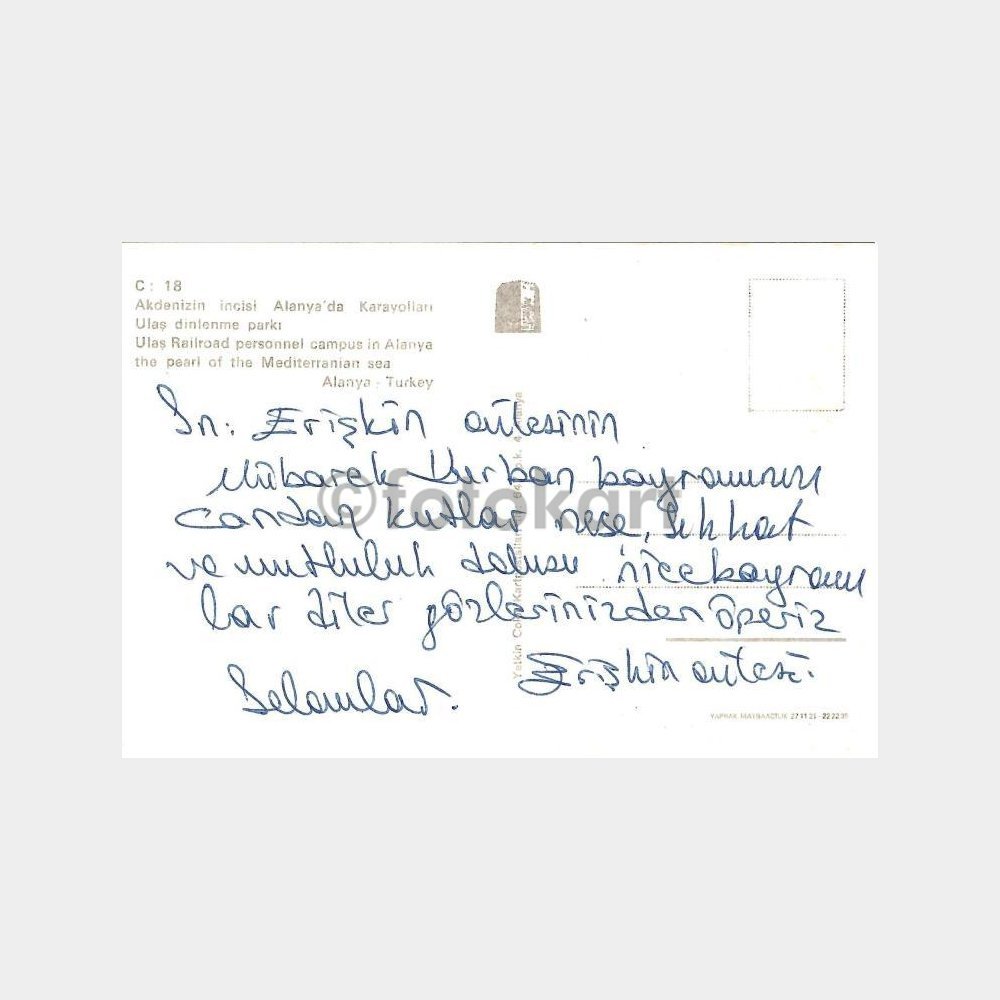 C: 18
Akdenizin incisi Alanya'da Karayolları
Ulaş dinlenme parkı
Ulaş Railroad personnel campus in Alanya
the pearl of the Mediterranian sea
Alanya - Turkey
Sn: Erişkin ailesinin
Mübarek Kurban bayramınızı
candan kutlar neşe, sıhhat
ve mutluluk dolusu nice bayram
lar diler gözlerinizden öperiz
Erişkin ailesi.
Selamlar.
©fotokart
Yetkin Color Kartpostalları
YAPRAK MATBAACILIK 27 11 21 - 22 22 39